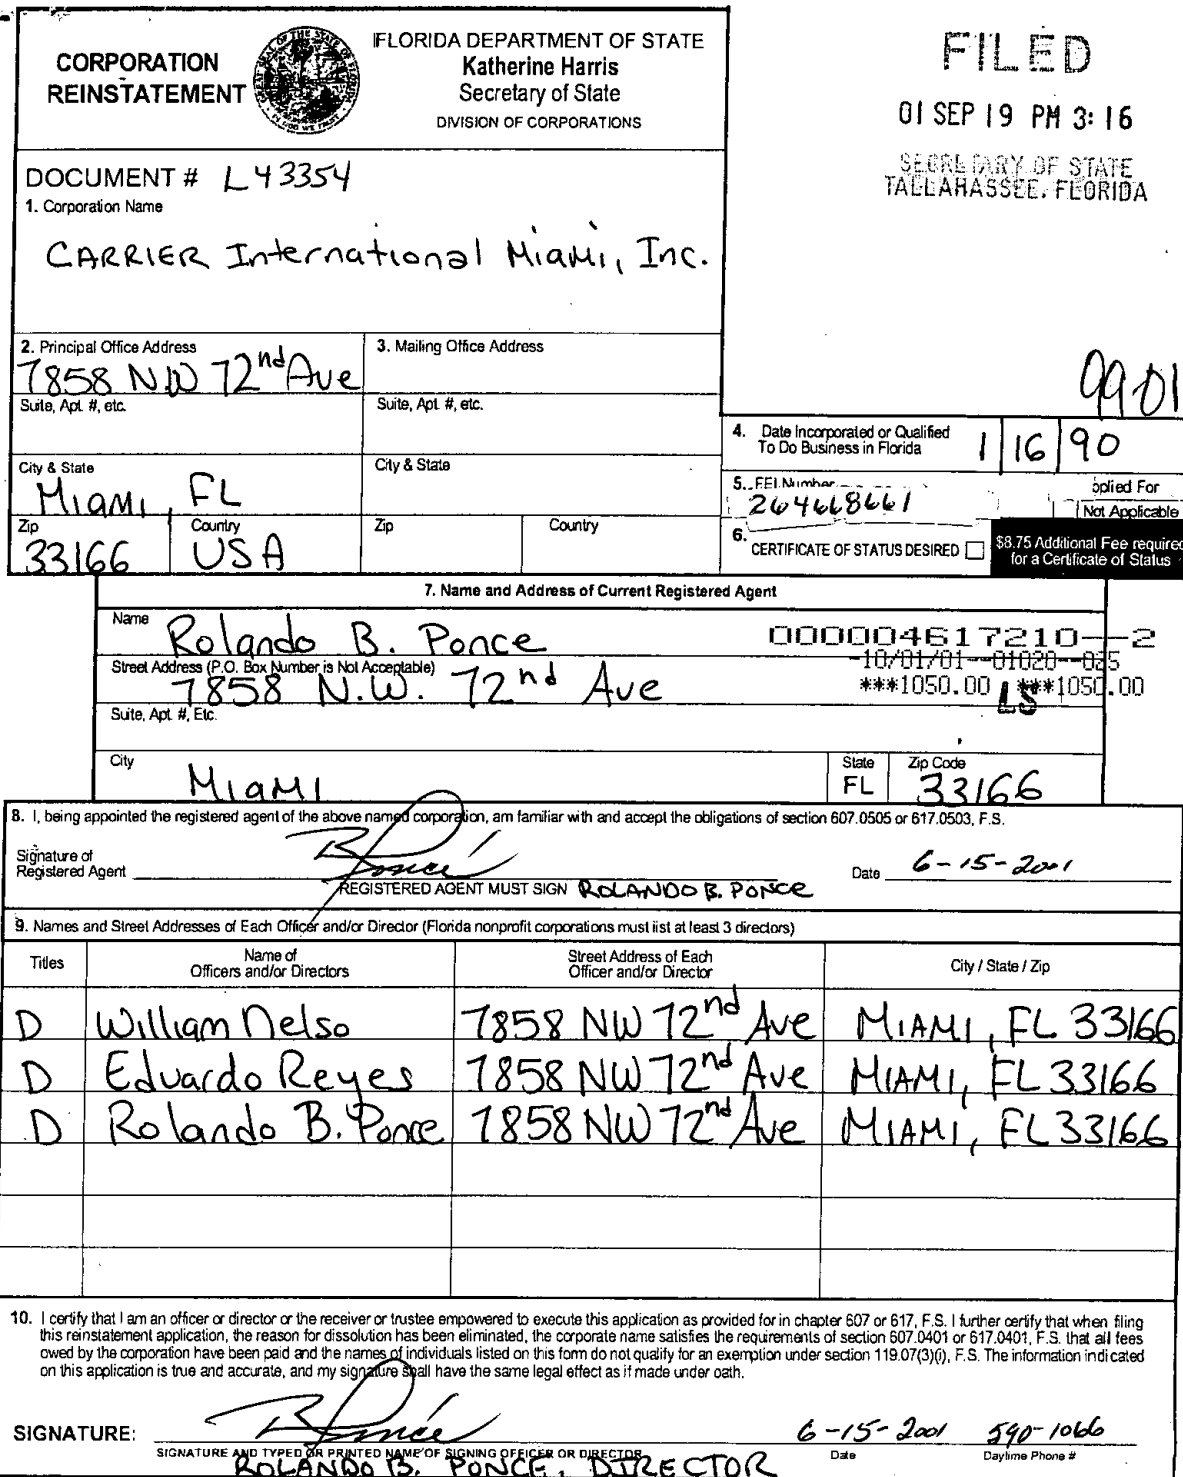 CORPORATION
REINSTATEMENT
FLORIDA DEPARTMENT OF STATE
Katherine Harris
Secretary of State
DIVISION OF CORPORATIONS
FILED
01 SEP 19 PM 3:16
SECRETARY OF STATE
TALLAHASSEE, FLORIDA
DOCUMENT # L43354
1. Corporation Name
CARRIER International Miami, Inc.
2. Principal Office Address
7858 NW 72nd Ave
3. Mailing Office Address
Suite, Apt. #, etc.
Suite, Apt. #, etc.
99-01
City & State
Miami, FL
City & State
Zip
33166
Country
USA
Zip
Country
4. Date Incorporated or Qualified
To Do Business in Florida
1 16 90
5. FEI Number
264668661
pplied For
Not Applicable
6. CERTIFICATE OF STATUS DESIRED
$8.75 Additional Fee required
for a Certificate of Status
7. Name and Address of Current Registered Agent
Name
Rolando B. Ponce
000004617210--2
-10/01/01--01020--025
***1050.00 ***1050.00
LS
Street Address (P.O. Box Number is Not Acceptable)
7858 N.W. 72nd Ave
Suite, Apt. #, Etc.
City
Miami
State
FL
Zip Code
33166
8. I, being appointed the registered agent of the above named corporation, am familiar with and accept the obligations of section 607.0505 or 617.0503, F.S.
Signature of
Registered Agent
B Ponce
Date 6-15-2001
REGISTERED AGENT MUST SIGN ROLANDO B. PONCE
9. Names and Street Addresses of Each Officer and/or Director (Florida nonprofit corporations must list at least 3 directors)
Titles
Name of
Officers and/or Directors
Street Address of Each
Officer and/or Director
City / State / Zip
D William Nelso 7858 NW 72nd Ave MIAMI, FL 33166
D Eduardo Reyes 7858 NW 72nd Ave MIAMI, FL 33166
D Rolando B. Ponce 7858 NW 72nd Ave MIAMI, FL 33166
10. I certify that I am an officer or director or the receiver or trustee empowered to execute this application as provided for in chapter 607 or 617, F.S. I further certify that when filing
this reinstatement application, the reason for dissolution has been eliminated, the corporate name satisfies the requirements of section 607.0401 or 617.0401, F.S. that all fees
owed by the corporation have been paid and the names of individuals listed on this form do not qualify for an exemption under section 119.07(3)(i), F.S. The information indicated
on this application is true and accurate, and my signature shall have the same legal effect as if made under oath.
SIGNATURE: B Ponce 6-15-2001 590-1066
SIGNATURE AND TYPED OR PRINTED NAME OF SIGNING OFFICER OR DIRECTOR
Date
Daytime Phone #
ROLANDO B. PONCE, DIRECTOR